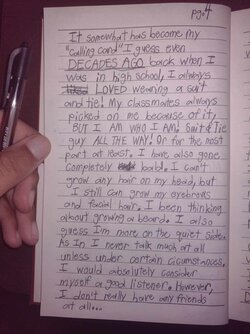 pg.4
It somewhat has become my
"calling card" I guess even
DECADES AGO back when I
was in high school, I always
LOVED wearing a suit
and tie! My classmates always
picked on me because of it,
BUT I AM WHO I AM! Suit & Tie
guy ALL THE WAY! Or for the most
part at least. I have also gone
completely bald. I can't
grow any hair on my head, but
I still can grow my eyebrows
and facial hair. I been thinking
about growing a beard. I also
guess I'm more on the quiet side.
As In I never talk much at all
unless under certain cicumstances.
I would absolutely consider
myself a good listener. However,
I don't really have any friends
at all...